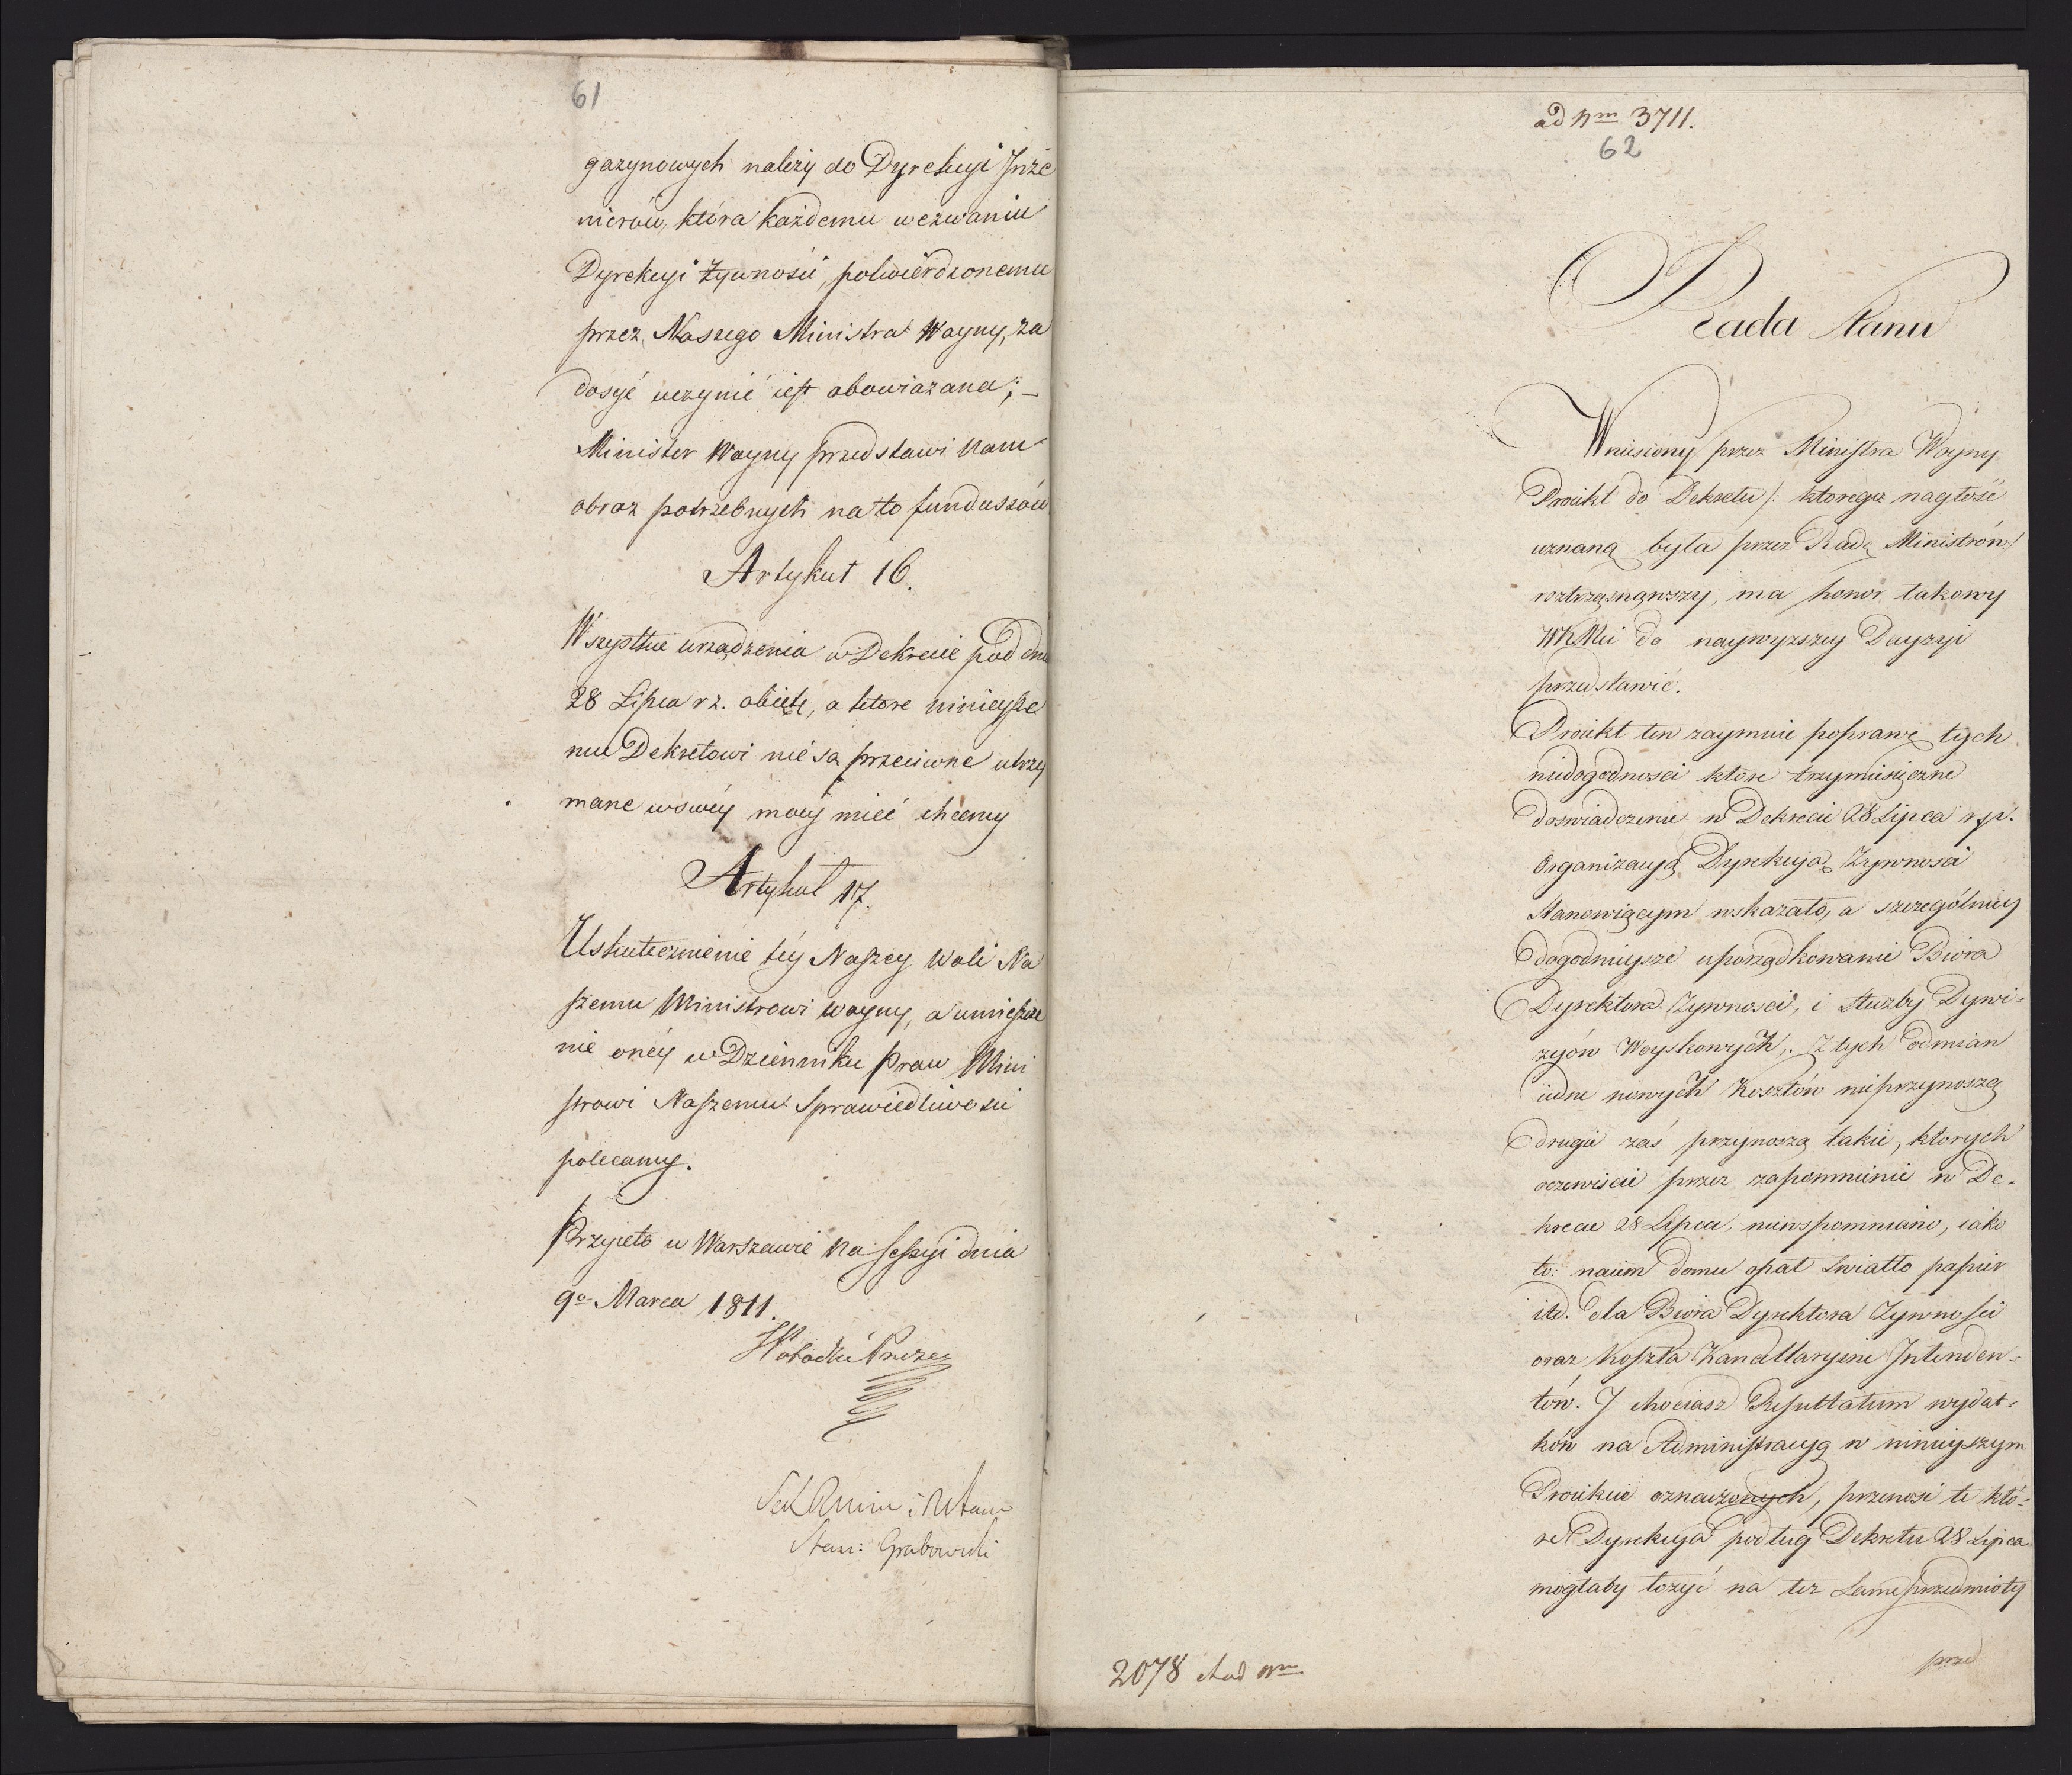 61
gazynowych należy do Dyrekcyi Inże
nierów, która każdemu wezwaniu
Dyrekcyi Żywnosci, potwierdzonemu
przez Naszego Ministra Woyny, za
dosyć uczynić iest obowiązana; –
Minister Woyny przedstawi Nam
obraz potrzebnych na to funduszów
Artykuł 16.
Wszystkie urządzenia w Dekrecie pod dn
28 Lipca r z. obięte, a które ninieysze
mu Dekretowi nie są przeciwne utrzy
mane w swéy mocy mieć chcemy
Artykuł 17.
Uskutecznienie téy Naszey Woli Na
szemu Ministrowi Woyny, a umieszcze
nie onéy w Dzienniku Praw Mini
strowi Naszemu Sprawiedliwosci
polecamy.
Przyięto w Warszawie na Sessyi dnia
9o Marca 1811.
Stan: Grabowski
ad Nm 3711.
62
Rada Stanu
Wniesiony przez Ministra Woyny
Proiekt do Dekretu /: ktorego nagłość
uznaną była przez Radę Ministrów/
roztrząsnąwszy, ma honor takowy
WKMci do naywyzszey Decyzyi
przedstawić.
Proiekt ten zaymuie poprawę tych
niedogodnosci które trzymiesięczne
doswiadczenie w Dekrecie 28 Lipca r.p.
Organizacyą Dyrekcyą Zywnosci
Stanowiącym wskazało, a szczególniey
dogodnieysze uporządkowanie Biora
Dyrektora Zywnosci, i służby Dywi=
zyów Woyskowych,. Z tych odmian
iedne nowych Kosztów nieprzynoszą
drugie zaś przynoszą takie, ktorych
oczewiscie przez zapomnienie w De=
krecie 28 Lipca, niewspomniano, iako
to: naiem domu opał swiatło papier
itd. dla Biora Dyrektora Zywnosci
oraz Koszta Kancellaryine Intenden=
tów. I chociasz Resultatum wydat=
ków na Administracyą w ninieyszym
Proiekcie oznaczonych, przenosi te któ=
re Dyrekcya podług Dekretu 28 Lipca
mogłaby łożyć na tez same przedmioty
przed
2078 Nm.